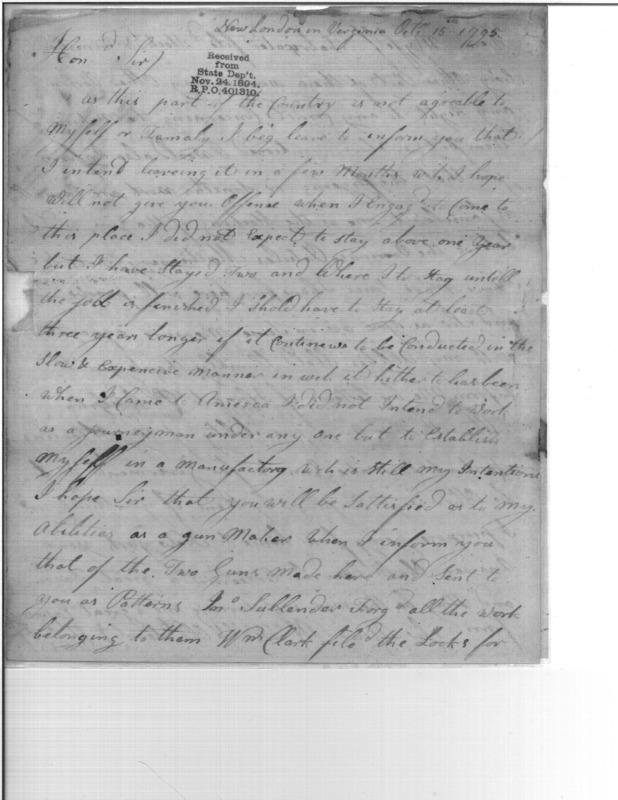 New London in Virginia Octr 15th 1795
Hond Sir)
Received
from
State Dep't.
Nov. 24. 1894.
R.P.O. 401310.
as this part of the Country is not agreable to
Myself or Famaly I beg leave to inform you that
I intend leaveing it in a few Months wh. I hope
will not give you Offense when I Engagd to Come to
this place I did not Expect to stay above one Year
but I have Stayed Two and Where I to stay untill
the Job is finished I shold have to stay at least
three years longer if it Continews to be Conducted in the
Slow & Expencive Manner in wch it hitherto has been
When I Came to America I did not Intend to work
as a Journeyman under any one but to Establish
Myself in a Manufactory wch is still my Intentions
I hope Sir that you will be Sattisfied as to My
Abilities as a gun Maker When I inform you
that of the Two Guns Made here and Sent to
you as Patterns Jno Sullender Forgd all the work
belonging to them Wm Clark filed the Locks for